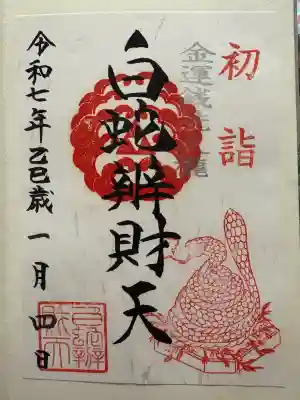 初詣
金運銭洗龍
白蛇辨財天
令和七年乙巳歳一月四日